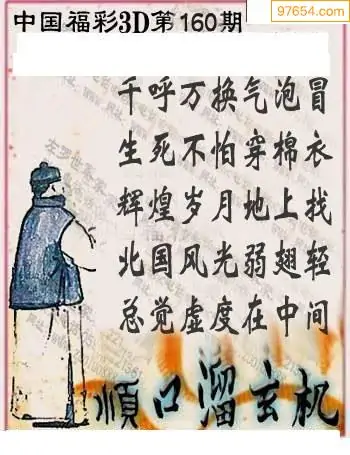 97654.com
中国福彩3D第160期
千呼万换气泡冒
生死不怕穿棉衣
辉煌岁月地上找
北国风光弱翅轻
总觉虚度在中间
顺口溜玄机